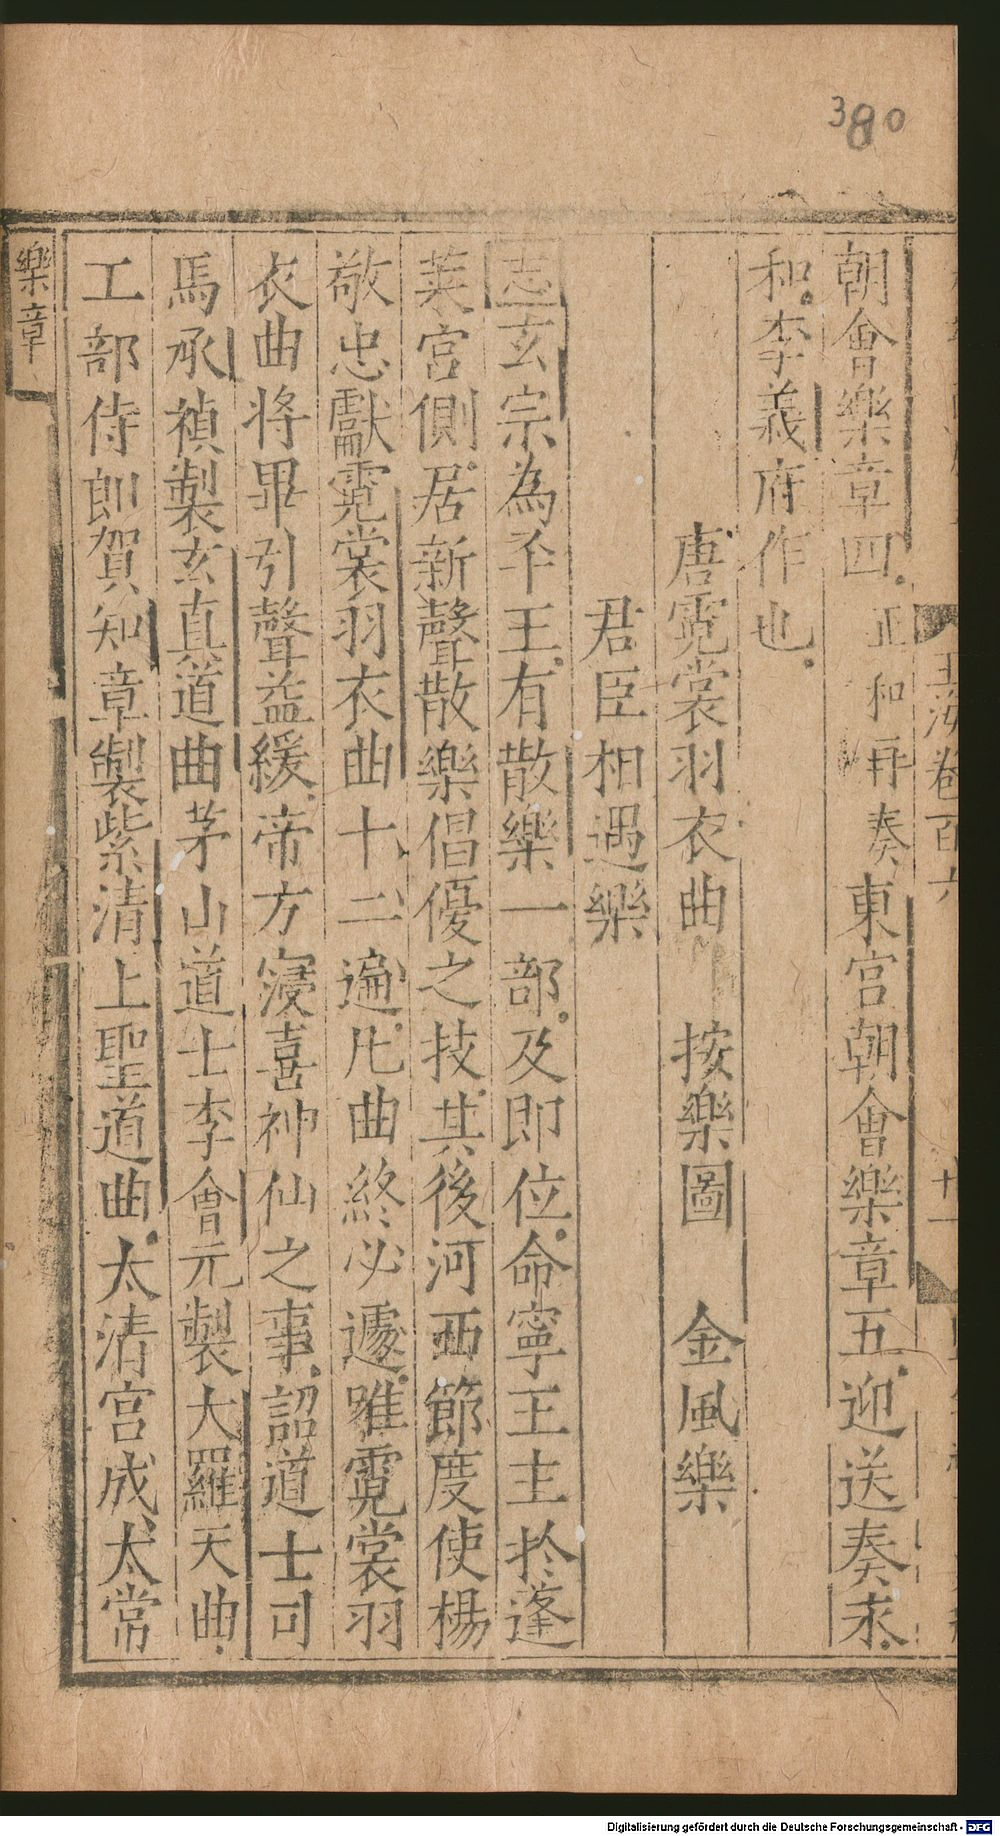 380
玉海卷百六
十一
朝會樂章四正和再奏東宮朝會樂章五迎送奏永
和李義府作也
唐霓裳羽衣曲 按樂圖 金風樂
君臣相遇樂
志玄宗為平王有散樂一部及即位命寧王主於蓬
萊宮側居新聲散樂倡優之技其後河西節度使楊
敬忠獻霓裳羽衣曲十二遍凡曲終必遽唯霓裳羽
衣曲將畢引聲益緩帝方寖喜神仙之事詔道士司
馬承禎製玄真道曲茅山道士李會元製大羅天曲
工部侍郎賀知章製紫清上聖道曲太清宮成太常
樂章
Digitalisierung gefördert durch die Deutsche Forschungsgemeinschaft - DFG